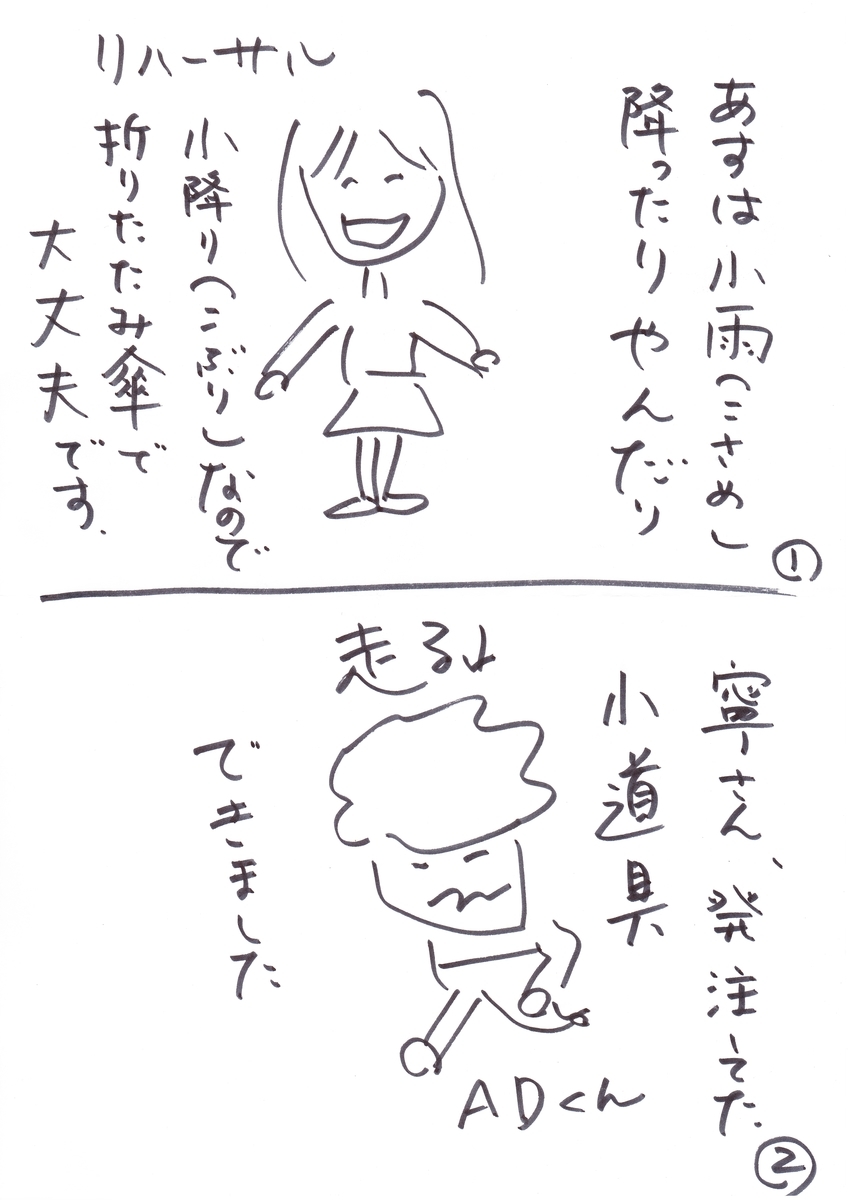 リハーサル
あすは小雨(こさめ)
降ったりやんだり
小降り(こぶり)なので
折りたたみ傘で
大丈夫です.
①
走る↓
寧さん、発注してた
小道具
できました
ADくん
②